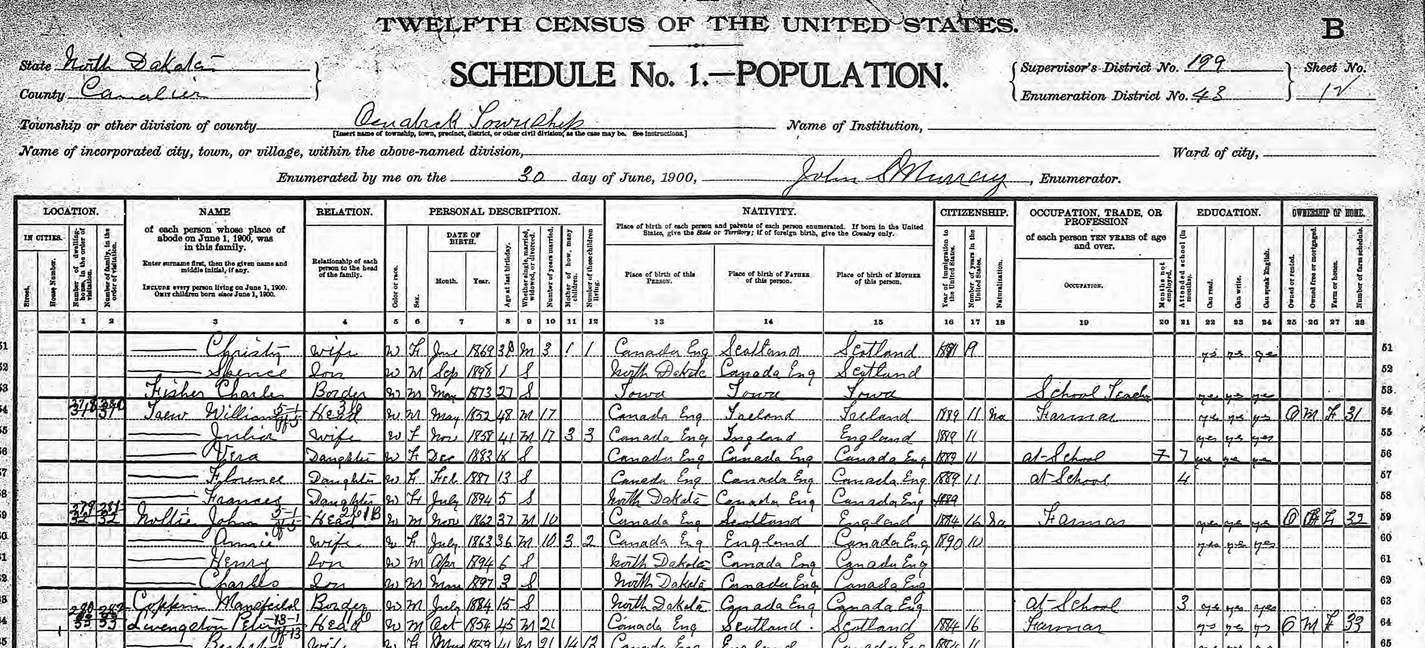 TWELFTH CENSUS OF THE UNITED STATES.
B
State North Dakota
County Cavalier
SCHEDULE No. 1.—POPULATION.
Supervisor's District No. 199
Enumeration District No. 43
Sheet No.
12
Township or other division of county Osnabrock Township
[Insert name of township, town, precinct, district, or other civil division, as the case may be. See instructions.]
Name of Institution,
Name of incorporated city, town, or village, within the above-named division,
Ward of city,
Enumerated by me on the 30 day of June, 1900, John S Murray, Enumerator.
LOCATION. NAME RELATION. PERSONAL DESCRIPTION. NATIVITY. CITIZENSHIP. OCCUPATION, TRADE, OR PROFESSION EDUCATION. OWNERSHIP OF HOME.
IN CITIES.
Street.
House Number.
Number of dwelling-house, in the order of visitation.
Number of family, in the order of visitation.
of each person whose place of abode on June 1, 1900, was in this family.
Enter surname first, then the given name and middle initial, if any.
INCLUDE every person living on June 1, 1900.
OMIT children born since June 1, 1900.
Relationship of each person to the head of the family.
Color or race.
Sex.
DATE OF BIRTH.
Month. Year.
Age at last birthday.
Whether single, married, widowed, or divorced.
Number of years married.
Mother of how many children.
Number of these children living.
Place of birth of each person and parents of each person enumerated. If born in the United States, give the State or Territory; if of foreign birth, give the Country only.
Place of birth of this PERSON.
Place of birth of FATHER of this person.
Place of birth of MOTHER of this person.
Year of immigration to the United States.
Number of years in the United States.
Naturalization.
of each person TEN YEARS of age and over.
OCCUPATION.
Months not employed.
Attended school (in months).
Can read.
Can write.
Can speak English.
Owned or rented.
Owned free or mortgaged.
Farm or house.
Number of farm schedule.
1 2 3 4 5 6 7 8 9 10 11 12 13 14 15 16 17 18 19 20 21 22 23 24 25 26 27 28
51 Christy wife W F June 1869 M 3 1 1 Canada Eng Scotland Scotland 9 yes yes yes 51
52 Spence Son W M Sep 1898 1 S North Dakota Canada Eng Scotland 52
53 Fisher Charles Border W M May 1873 27 S Iowa Iowa Iowa School Teacher yes yes yes 53
54 William Head W M May 1852 48 M 17 Canada Eng 1889 11 Na Farmer yes yes yes O M F 31 54
55 Julia wife W F Nov 1858 41 M 17 3 3 Canada Eng England England 1889 11 yes yes yes 55
56 Vera Daughter W F Dec 1883 16 S Canada Eng Canada Eng Canada Eng 1889 11 at School 7 7 yes yes yes 56
57 Florence Daughter W F Feb 1887 13 S Canada Eng Canada Eng Canada Eng 1889 11 at School 4 57
58 Frances Daughter W F July 1894 5 S North Dakota Canada Eng Canada Eng 58
59 John Head W M Nov 1862 37 M 10 Canada Eng Scotland England 1884 16 Na Farmer yes yes yes O F 32 59
60 Annie wife W F July 1863 36 M 10 3 2 Canada Eng England Canada Eng 1890 10 yes yes yes 60
61 Henry Son W M Apr 1894 6 S North Dakota Canada Eng Canada Eng 61
62 Charles Son W M 1897 3 S North Dakota Canada Eng Canada Eng 62
63 Mansfield Border W M July 1884 15 S North Dakota Canada Eng Canada Eng at School 3 yes yes yes 63
64 Livengston Peter Head W M Oct 1854 45 M 21 Canada Eng Scotland Scotland 1884 16 Farmer yes yes yes O M F 33 64
wife W F 1859 41 M 21 14 Canada Eng England Canada Eng 65